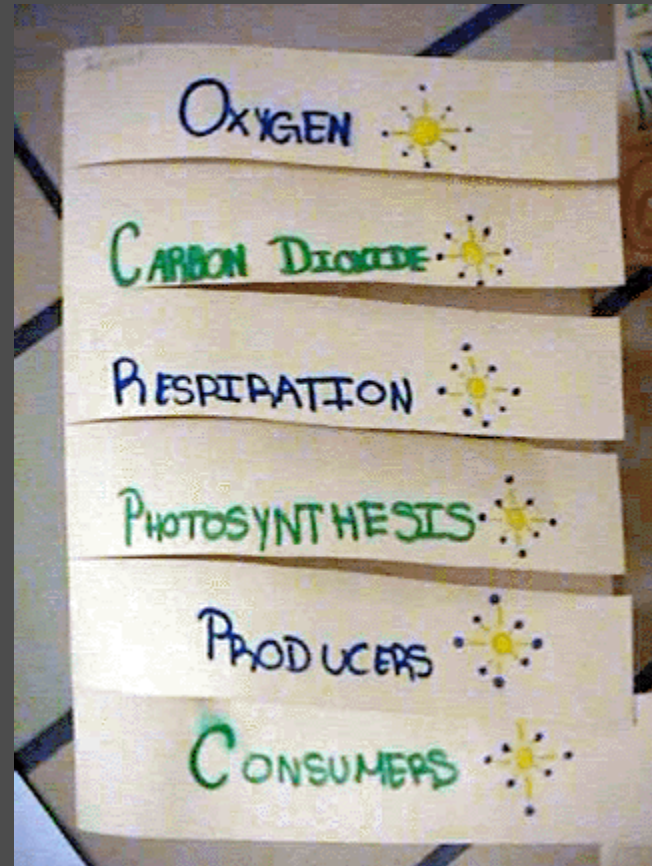 OXYGEN
CARBON DIOXIDE
RESPIRATION
PHOTOSYNTHESIS
PRODUCERS
CONSUMERS